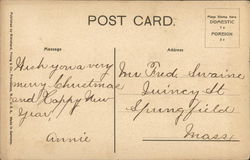 POST CARD.
Place Stamp Here
DOMESTIC
1¢
FOREIGN
2¢
Message
Address
Wish you a very
merry Christmas
and Happy New
Year.
Annie
Mr Fred Swaine
Quincy St
Springfield
Mass